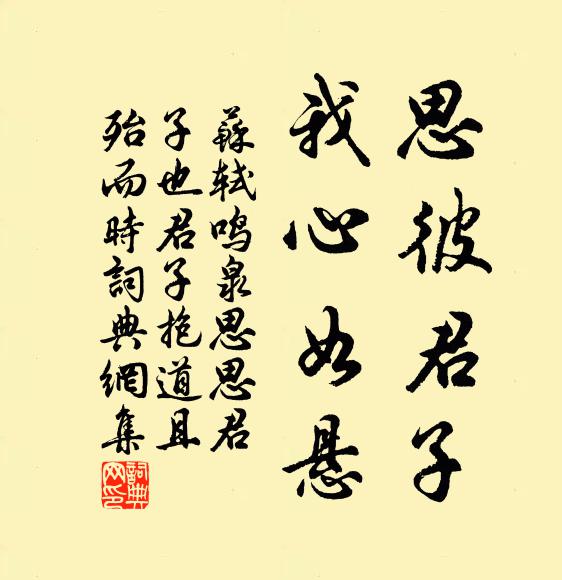 思彼君子
我心如悬
蘇軾鳴泉思思君
子也君子抱道且
殆而時詞典網集
詞典
网印